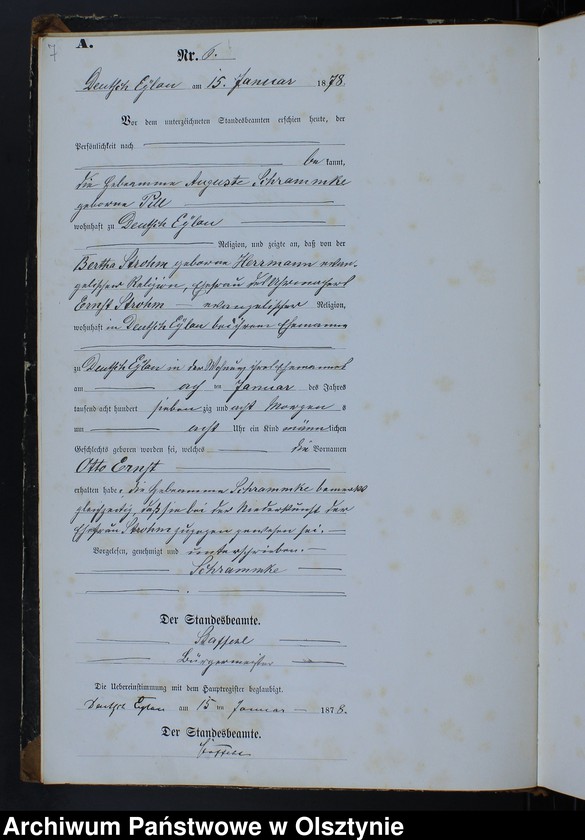 7
A.
Nr. 6.
Deutsch Eylau am 15. Januar 1878.
Vor dem unterzeichneten Standesbeamten erschien heute, der
Persönlichkeit nach
be kannt,
die Hebeamme Auguste Schrammke
geborne Till
wohnhaft zu Deutsch Eylau
Religion, und zeigte an, daß von der
Bertha Strohm geborne Herrmann evan-
gelischer Religion, Ehefrau des
Ernst Strohm evangelischer Religion,
wohnhaft in Deutsch Eylau bei ihrem Ehemanne
zu Deutsch Eylau in der Wohnung ihres Ehemannes
am acht ten Januar des Jahres
tausend acht hundert sieben zig und acht Morgen s
um acht Uhr ein Kind männ lichen
Geschlechts geboren worden sei, welches die Vornamen
Otto Ernst
erhalten habe; die Hebeamme Schrammke bemerkte
gleichzeitig, daß sie bei der Niederkunft der
Ehefrau Strohm zugegen gewesen sei.
Vorgelesen, genehmigt und unterschrieben.
Schrammke
Der Standesbeamte.
Staffehl
Bürgermeister
Die Uebereinstimmung mit dem Hauptregister beglaubigt.
Deutsch Eylau am 15 ten Januar 1878.
Der Standesbeamte.
Staffehl
Archiwum Państwowe w Olsztynie